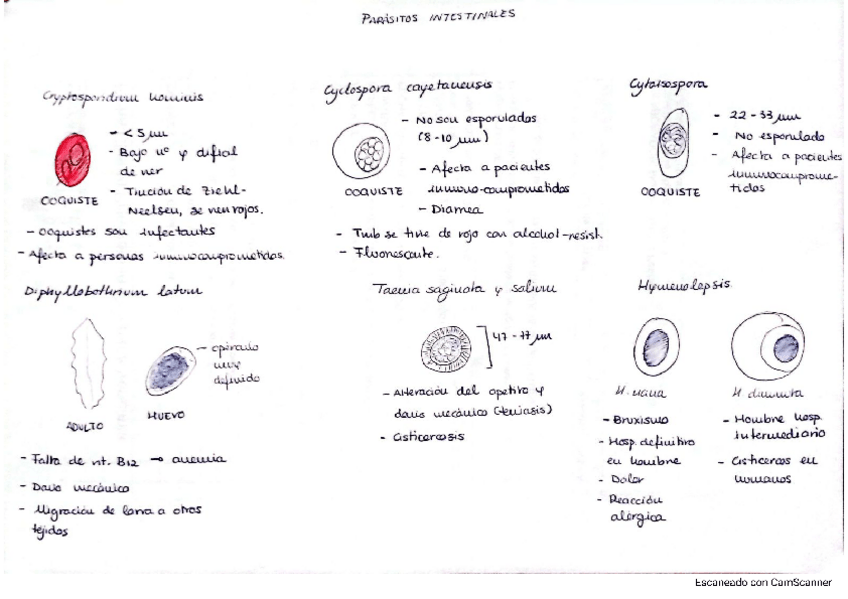 PARÁSITOS INTESTINALES
Cryptosporidium hominis
- < 5 µm
- Bajo nº y difícil
de ver
- Tinción de Ziehl-
Neelsen, se ven rojos.
OOQUISTE
- Ooquistes son infectantes
- Afecta a personas inmunocomprometidas.
Cyclospora cayetanensis
- No son esporulados
(8-10 µm)
- Afecta a pacientes
inmuno-comprometidos
- Diarrea
OOQUISTE
- Tmb se tiñe de rojo con alcohol-resist.
- Fluorescente.
Cytoisospora
- 22-33 µm
- No esporulado
- Afecta a pacientes
inmunocomprome-
tidos
OOQUISTE
Diphyllobothrium latum
- opérculo
muy
definido
ADULTO
HUEVO
- Falta de vit. B12 → anemia
- Daño mecánico
- Migración de larva a otros
tejidos
Taenia saginata y solium
47-77 µm
- Alteración del apetito y
daño mecánico (teniasis)
- Cisticercosis
Hymenolepsis
H. nana
- Bruxismo
- Hosp. definitivo
en hombre
- Dolor
- Reacción
alérgica
H. diminuta
- Hombre hosp.
intermediario
- Cisticercos en
humanos
Escaneado con CamScanner